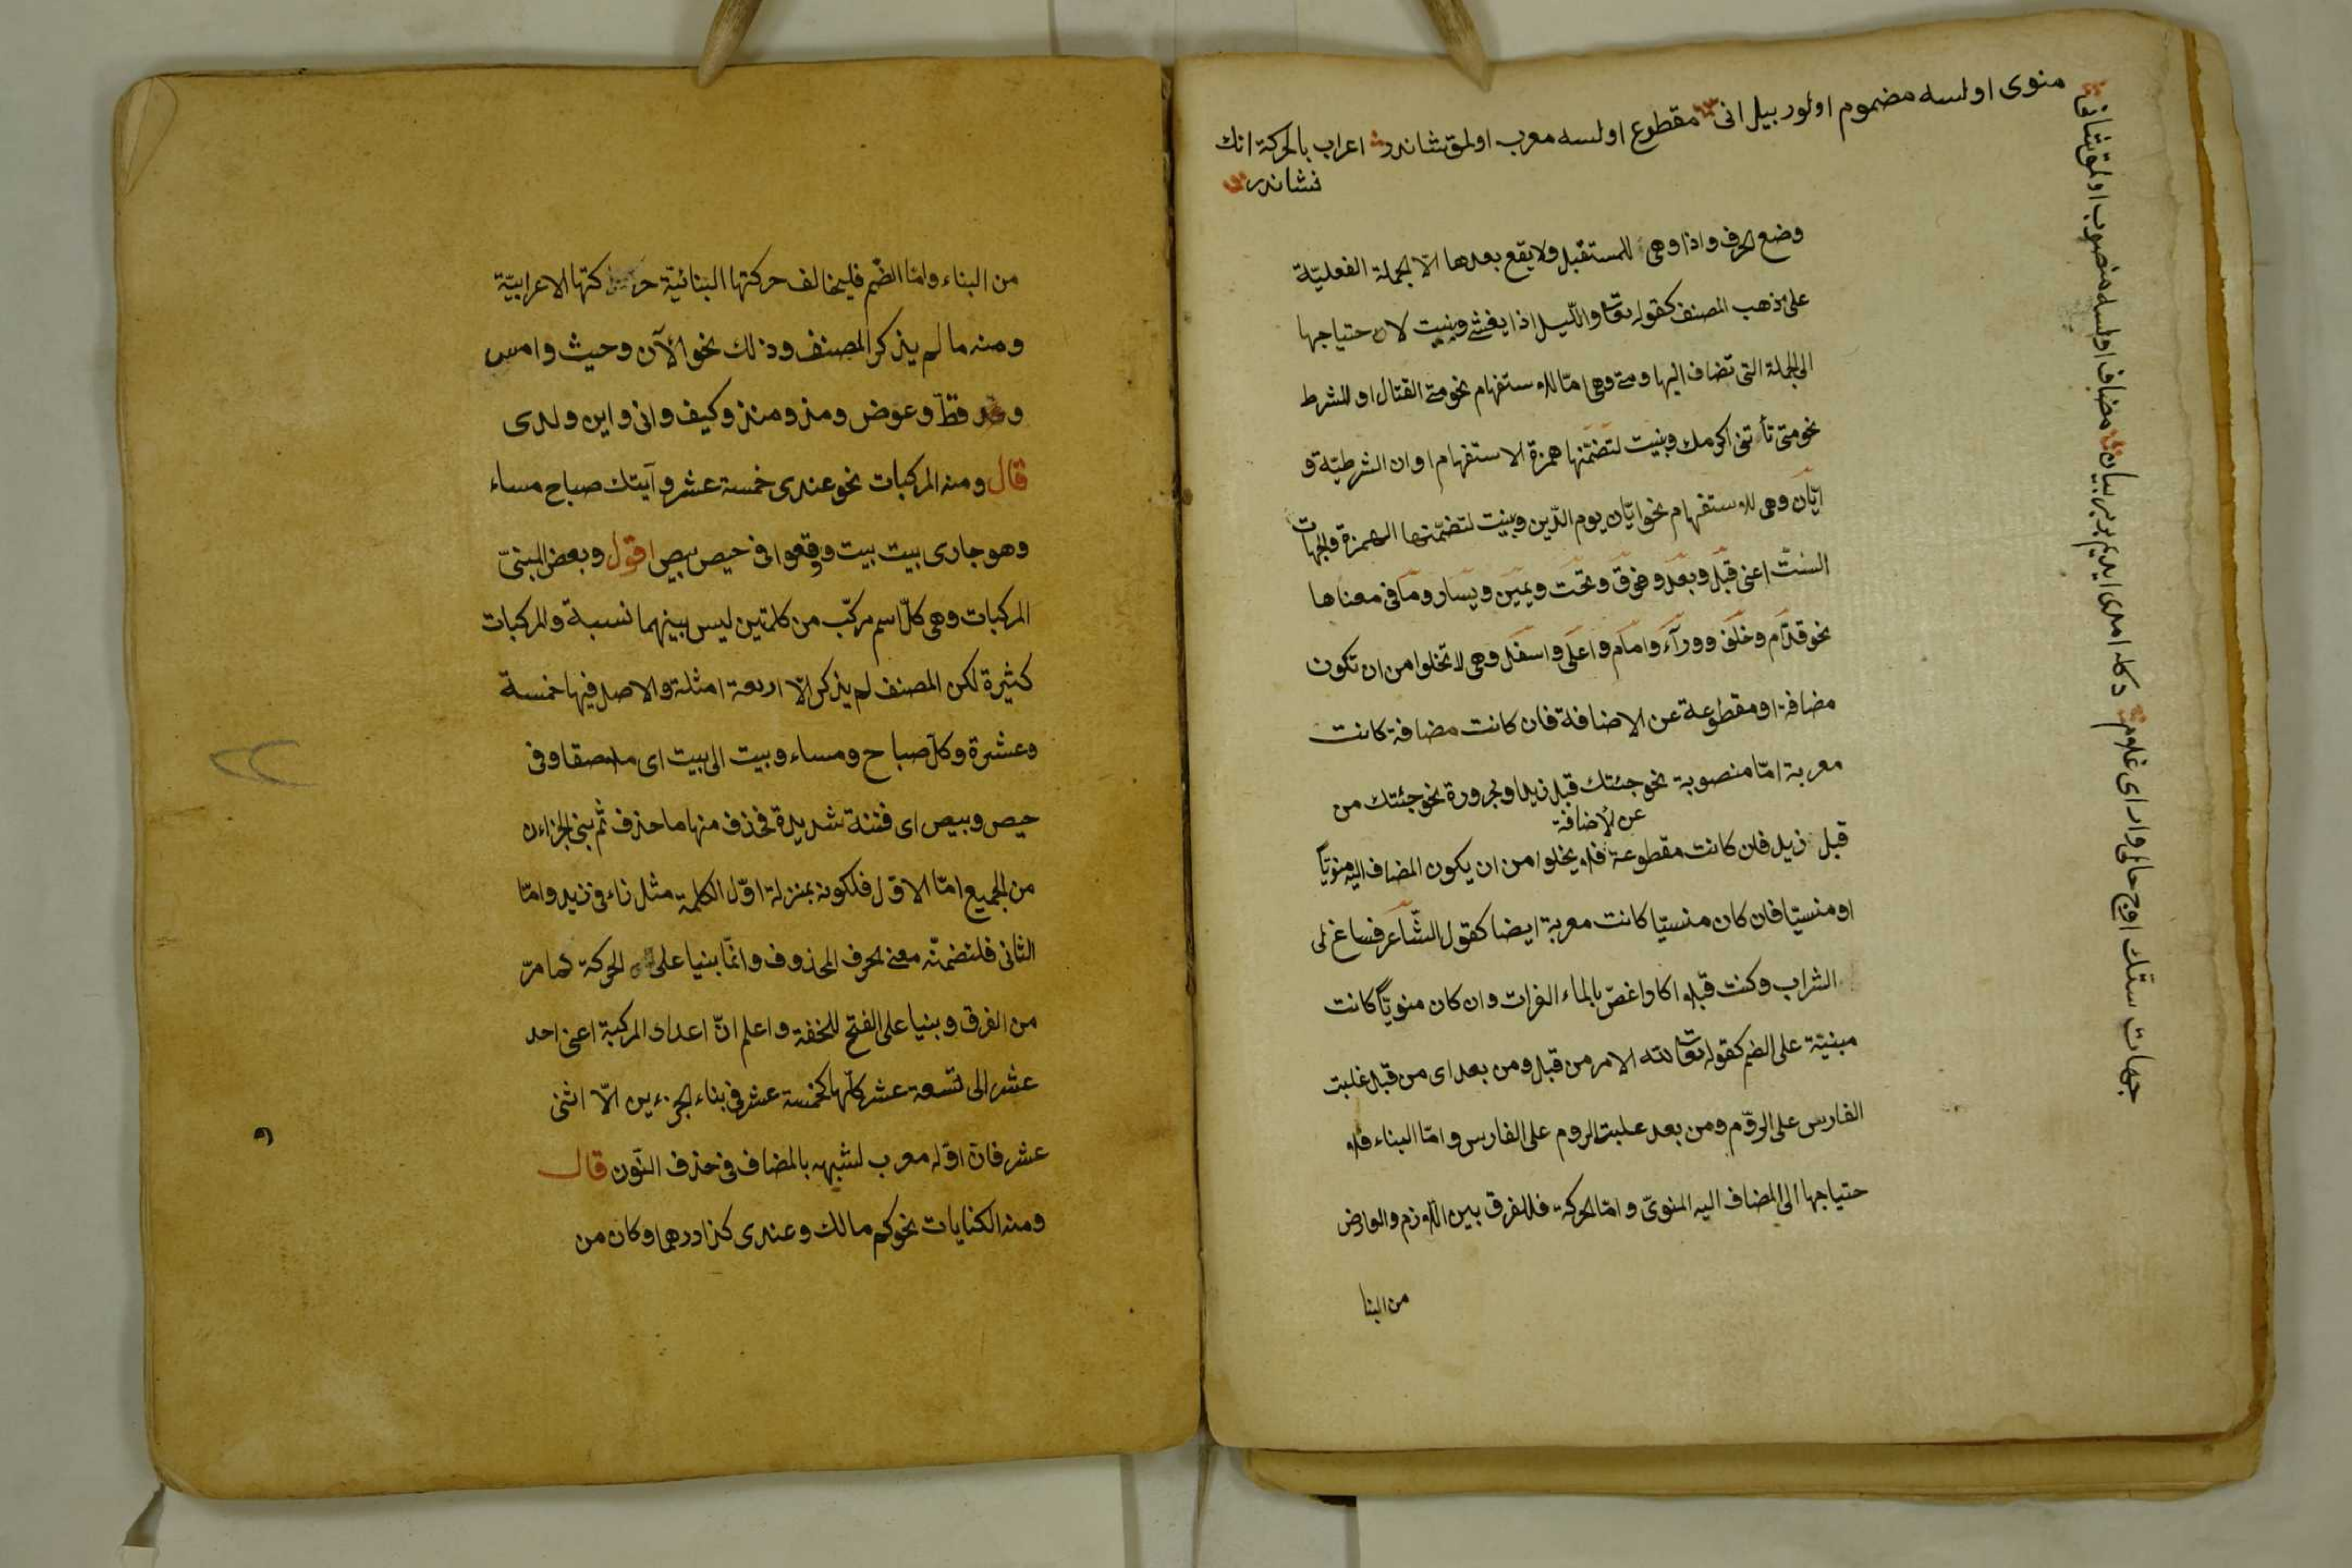 جهات ستك اوج حالى وار اى غلوم دكله امدى ايديم بر بر بيان مضاف اولسه منصوب اولمق نشانى
منوى اولسه مضموم اولور بيل انى مقطوع اولسه معرب اولمق نشاندر اعراب بالحركة انك
نشاندر
وضع الحرف واذا وهى للمستقبل ولا يقع بعدها الّا الجملة الفعليّة
على مذهب المصنف كقوله تعا والّيل اذا يغشى وبنيت لاحتياجها
الى الجملة التى تضاف اليها ومتى وهى امّا للاستفهام نحو متى القتال او للشرط
نحو متى تأتنى اكرمك وبنيت لتضمّنها همزة الاستفهام او ان الشرطيّة و
ايّان وهى للاستفهام نحو ايّان يوم الدّين وبنيت لتضمّنها الهمزة والجهات
الستّ اعنى قبل وبعد وفوق وتحت ويمين ويسار وما فى معناها
نحو قدّام وخلف ووراء وامام واعلى واسفل وهى لا تخلوا من ان تكون
مضافة او مقطوعة عن الاضافة فان كانت مضافة كانت
معربة امّا منصوبة نحو جئتك قبل زيد او مجرورة نحو جئتك من
عن الأضافة
قبل زيد فان كانت مقطوعة فلا يخلوا من ان يكون المضاف اليه منويّا
او منسيّا فان كان منسيّا كانت معربة ايضا كقول الشّاعر فساغ لى
الشراب وكنت قبلا اكاد اغصّ بالماء الفرات وان كان منويّا كانت
مبنيّة على الضم كقوله تعا لله الامر من قبل ومن بعد اى من قبل غلبت
الفارس على الروّم ومن بعد غلبت الروم على الفارس وامّا البناء فلا
حتياجها الى المضاف اليه المنوىّ وامّا الحركة فللفرق بين اللازم والعارض
من البنا
من البناء وامّا الضّم فليخالف حركتها البنائيّة حركتها الاعرابيّة
ومنه ما لم يذكر المصنف وذلك نحو الآن وحيث وامس
وقط وعوض ومذ ومنذ وكيف وانى واين ولدى
قال ومنه المركبات نحو عندى خمسة عشر وآتيتك صباح مساء
وهو جارى بيت بيت وقعوا فى حيص بيص اقول وبعض المبنىّ
المركبات وهى كلّ اسم مركّب من كلمتين ليس بينهما نسبة والمركبات
كثيرة لكن المصنف لم يذكر الّا اربعة امثلة والاصل فيها خمسة
وعشرة وكل صباح ومساء وبيت الى بيت اى ملاصقا وفى
حيص وبيص اى فتنة شديدة فحذف منها ما حذف ثم بنى الجزاءن
من الجميع امّا الاوّل فلكونه بمنزلة اوّل الكلمة مثل زاء فى زيد وامّا
الثانى فلتضمّنه معنى الحرف المحذوف وانّما بنيا على الحركة كما مرّ
من الفرق وبنيا على الفتح للخفة واعلم انّ اعداد المركبة اعنى احد
عشر الى تسعة عشر كلّها كخمسة عشر فى بناء الجزءين الّا اثنى
عشر فانّ اوّله معرب لشبهه بالمضاف فى حذف النّون قال
ومنه الكنايات نحو كم مالك وعندى كذا درهما وكان من